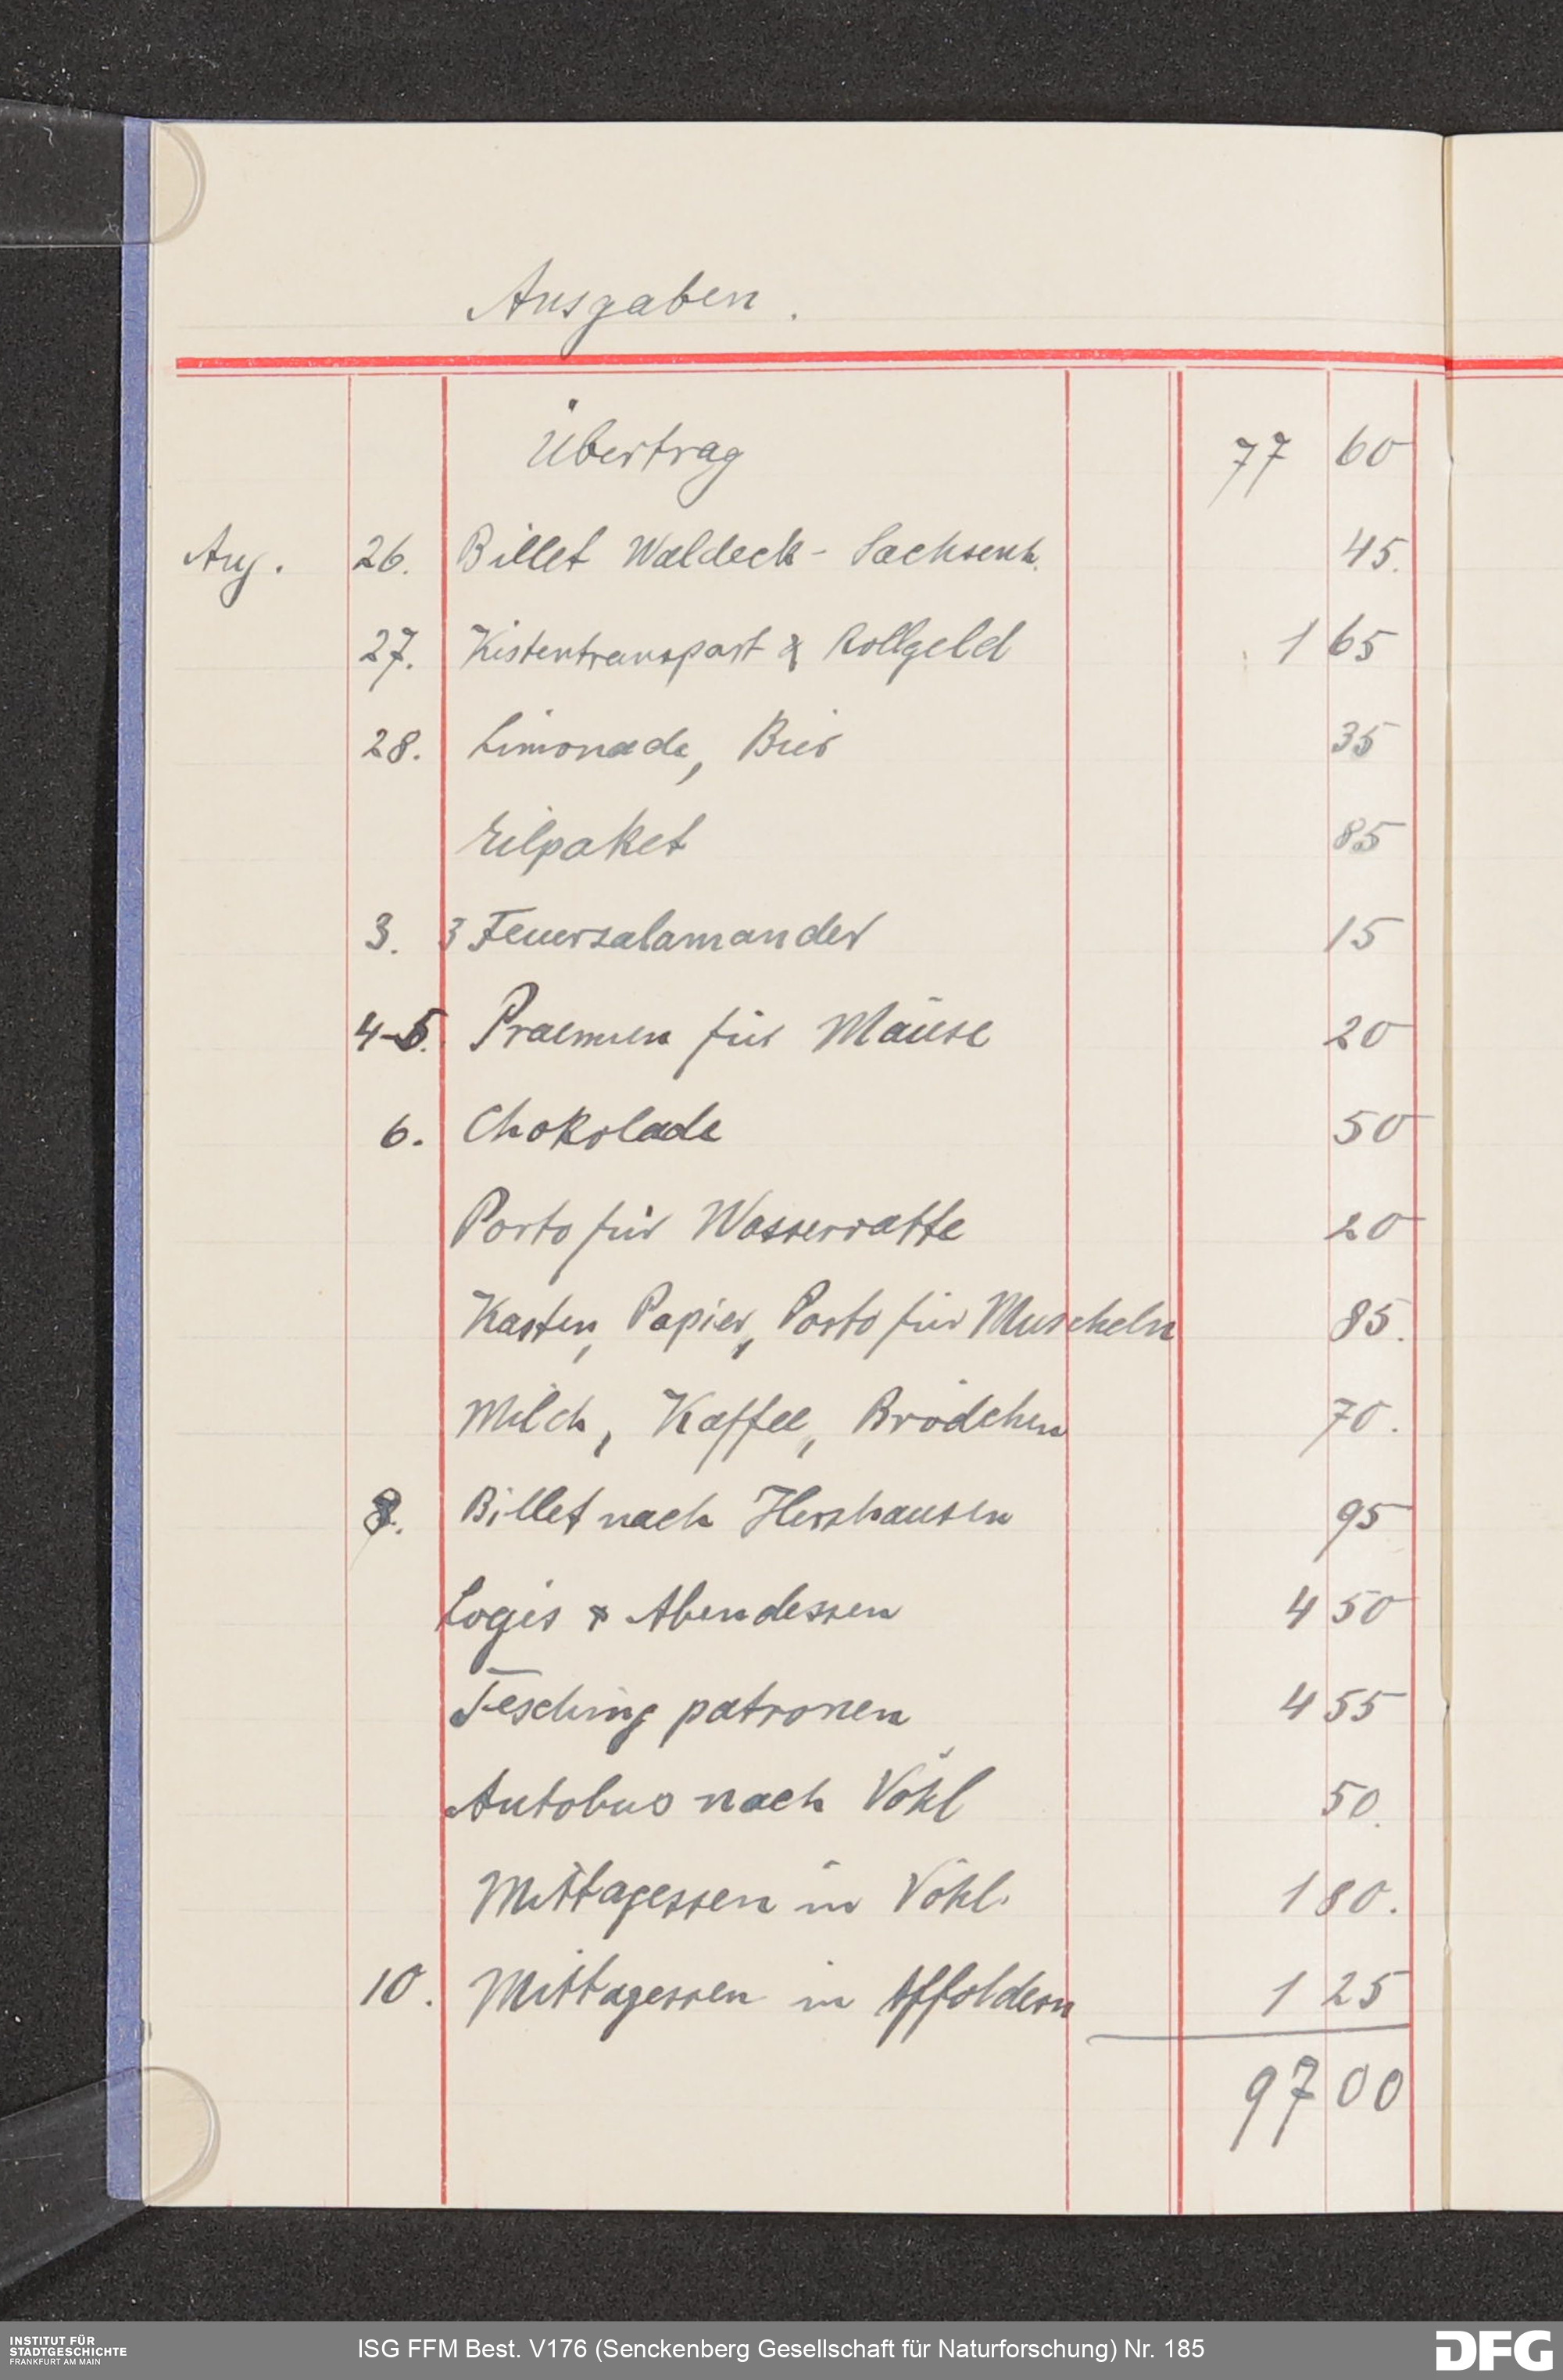 Ausgaben.
Übertrag 77 60
Aug. 26. Billet Waldeck - Sachsenh. 45.
27. Kistentransport & Rollgeld 1 65
28. Limonade, Bier 35
Eilpaket 85
3. 3 Feuersalamander 15
4-5. Praemien für Mäuse 20
6. Chokolade 50
Porto für Wasserratte 20
Kasten, Papier, Porto für Muscheln 85.
Milch, Kaffee, Brödchen 70.
8. Billet nach Herzhausen 95
Logis & Abendessen 4 50
Teschingpatronen 4 55
Autobus nach Vöhl 50.
Mittagessen in Vöhl. 1 80.
10. Mittagessen in Affoldern 1 25
97 00
INSTITUT FÜR
STADTGESCHICHTE
FRANKFURT AM MAIN
ISG FFM Best. V176 (Senckenberg Gesellschaft für Naturforschung) Nr. 185
DFG